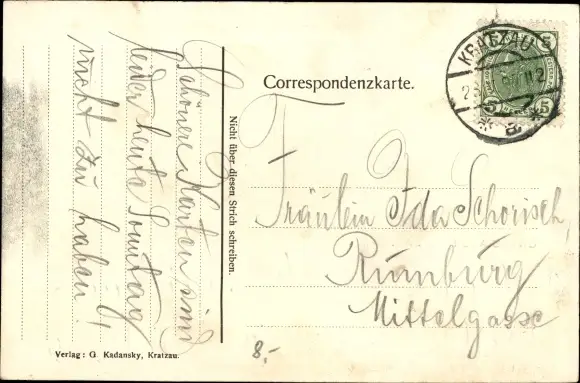 Correspondenzkarte.
KRATZAU
5 5
Nicht über diesen Strich schreiben.
Schönere Karten sind
leider heute Sonntag
nicht zu haben!
Fräulein Ida Schorisch,
Rumburg
Mittelgasse
Verlag: G. Kadansky, Kratzau.
8,-